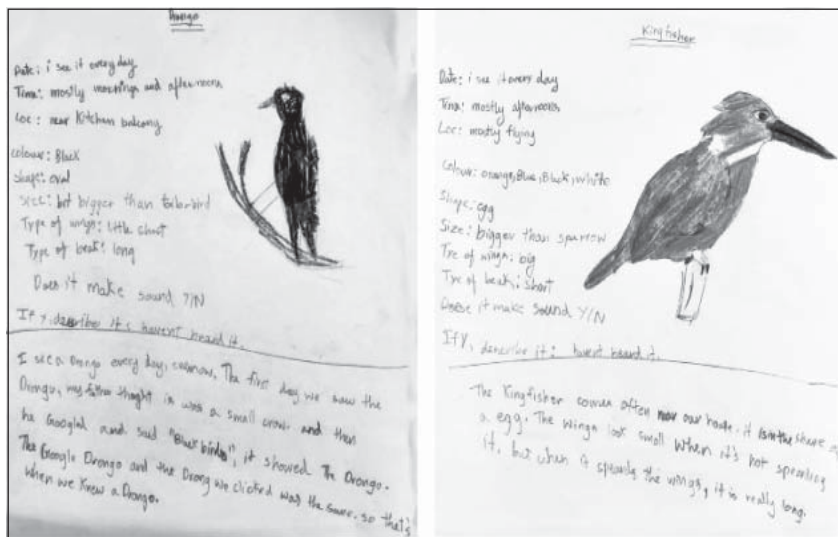 Drongo
Date: i see it everyday
Time: mostly mornings and afternoons
Loc: near Kitchen balcony
Colour: Black
shape: oval
size: bit bigger than tailorbird
Type of wings: little short
Type of beak: long
Does it make sound Y/N
If y, describe it: havent heard it.
I see a Drongo every day, somehow. The first day we saw the
Drongo, my father thought it was a small crow. and then
he Googled and said "Black birds", it showed The Drongo.
The Google Drongo and the Drong we clicked was the same, so that's
when we knew a Drongo.
Kingfisher
Date: i see it every day
Time: mostly afternoon
Loc: mostly flying
Colour: orange, Blue, Black, white
Shape: egg
Size: bigger than sparrow
Tye of wings: big
Tye of beak: short
Doese it make sound Y/N
If Y, describe it: havent heard it.
The Kingfisher comes often near our house. it is in the shape of
a egg. The wings look small when it's not spreading
it, but when it spreads the wings, it is really long.